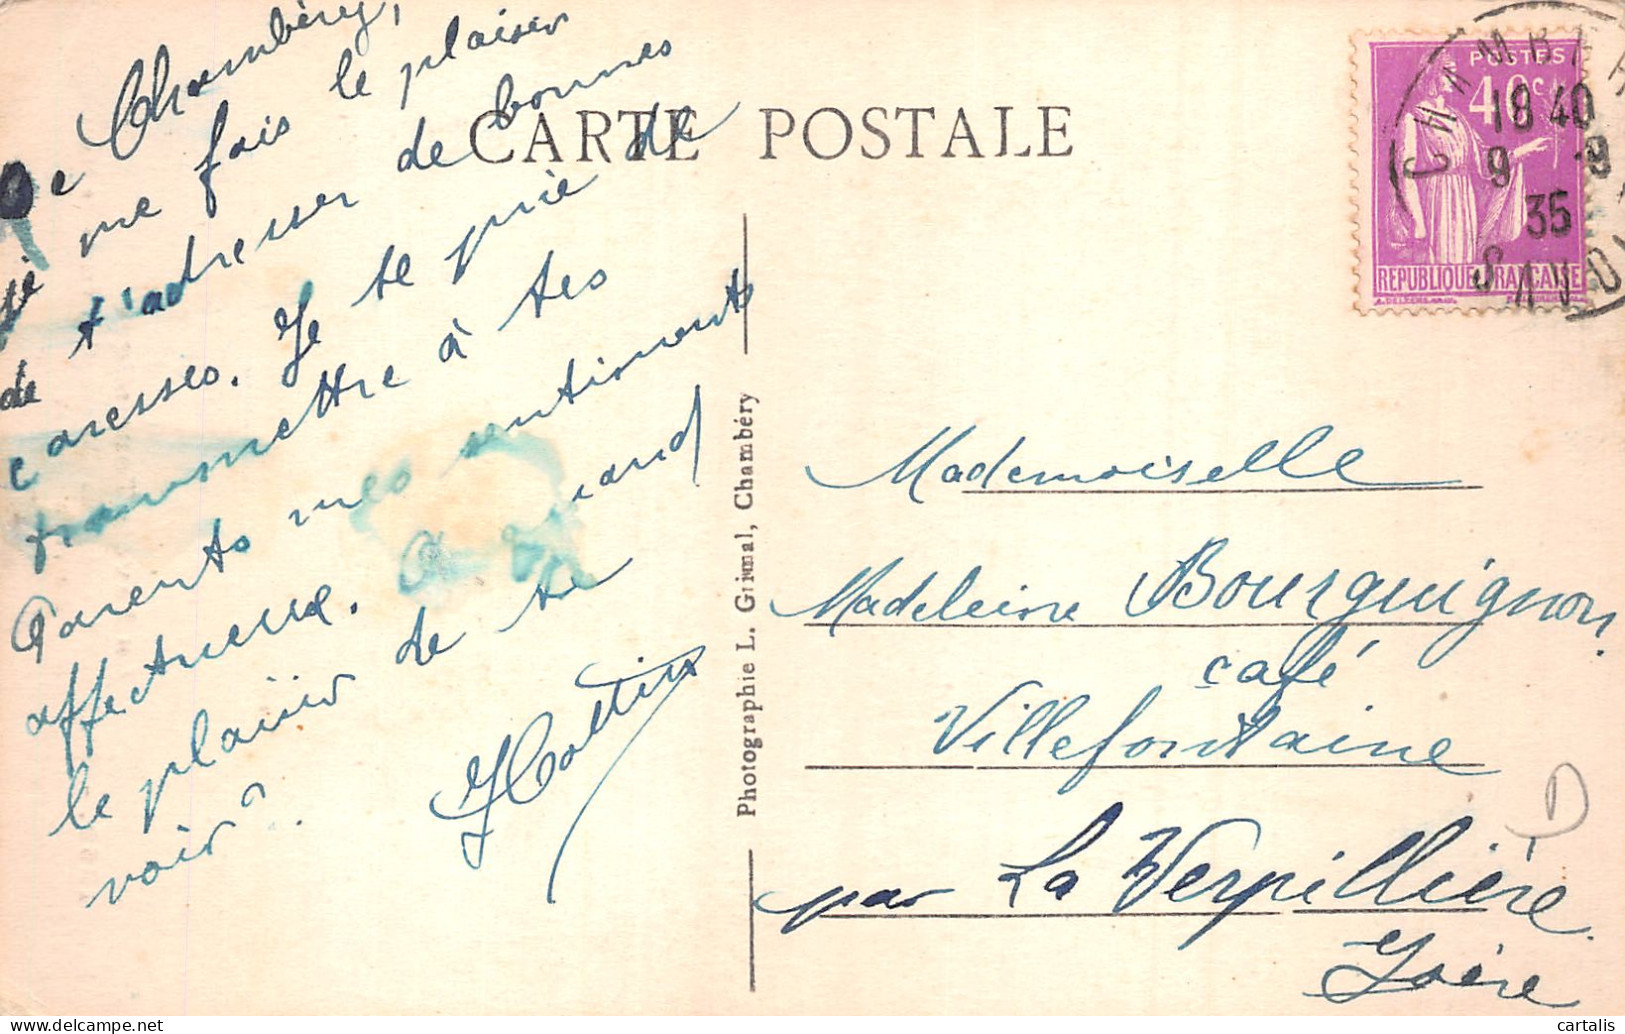 CARTE POSTALE
De Chambéry,
je me fais le plaisir
de t'adresser de bonnes
caresses. Je te prie de
transmettre à tes
Parents mes sentiments
affectueux. A quand
le plaisir de te
voir ?
Photographie L. Grimal, Chambéry
POSTES
40c
REPUBLIQUE FRANÇAISE
CHAMBERY
18 40
9 -9
35
SAVOIE
Mademoiselle
Madeleine Bourguignon
café
Villefontaine
par La Verpillière
Isère
D
cartalis